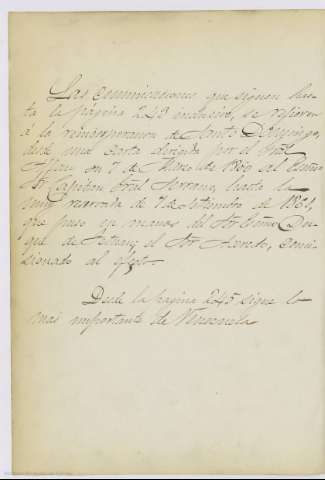 Las comunicaciones que siguen has-
ta la página 243 inclusive, se refieren
á la reincorporacion de Santo Domingo,
desde una carta dirigida por el Gral
en 7 de Marzo de 1860 al Escmo
Sr Capitan Gral Serrano, hasta la
muy reservada de 7 de setiembre de 1861,
que puso en manos del Sr Escmo Du-
que de Tetuan, el Sr comi-
sionado al efecto.
Desde la pagina 245 sigue lo
mas importante de Venezuela